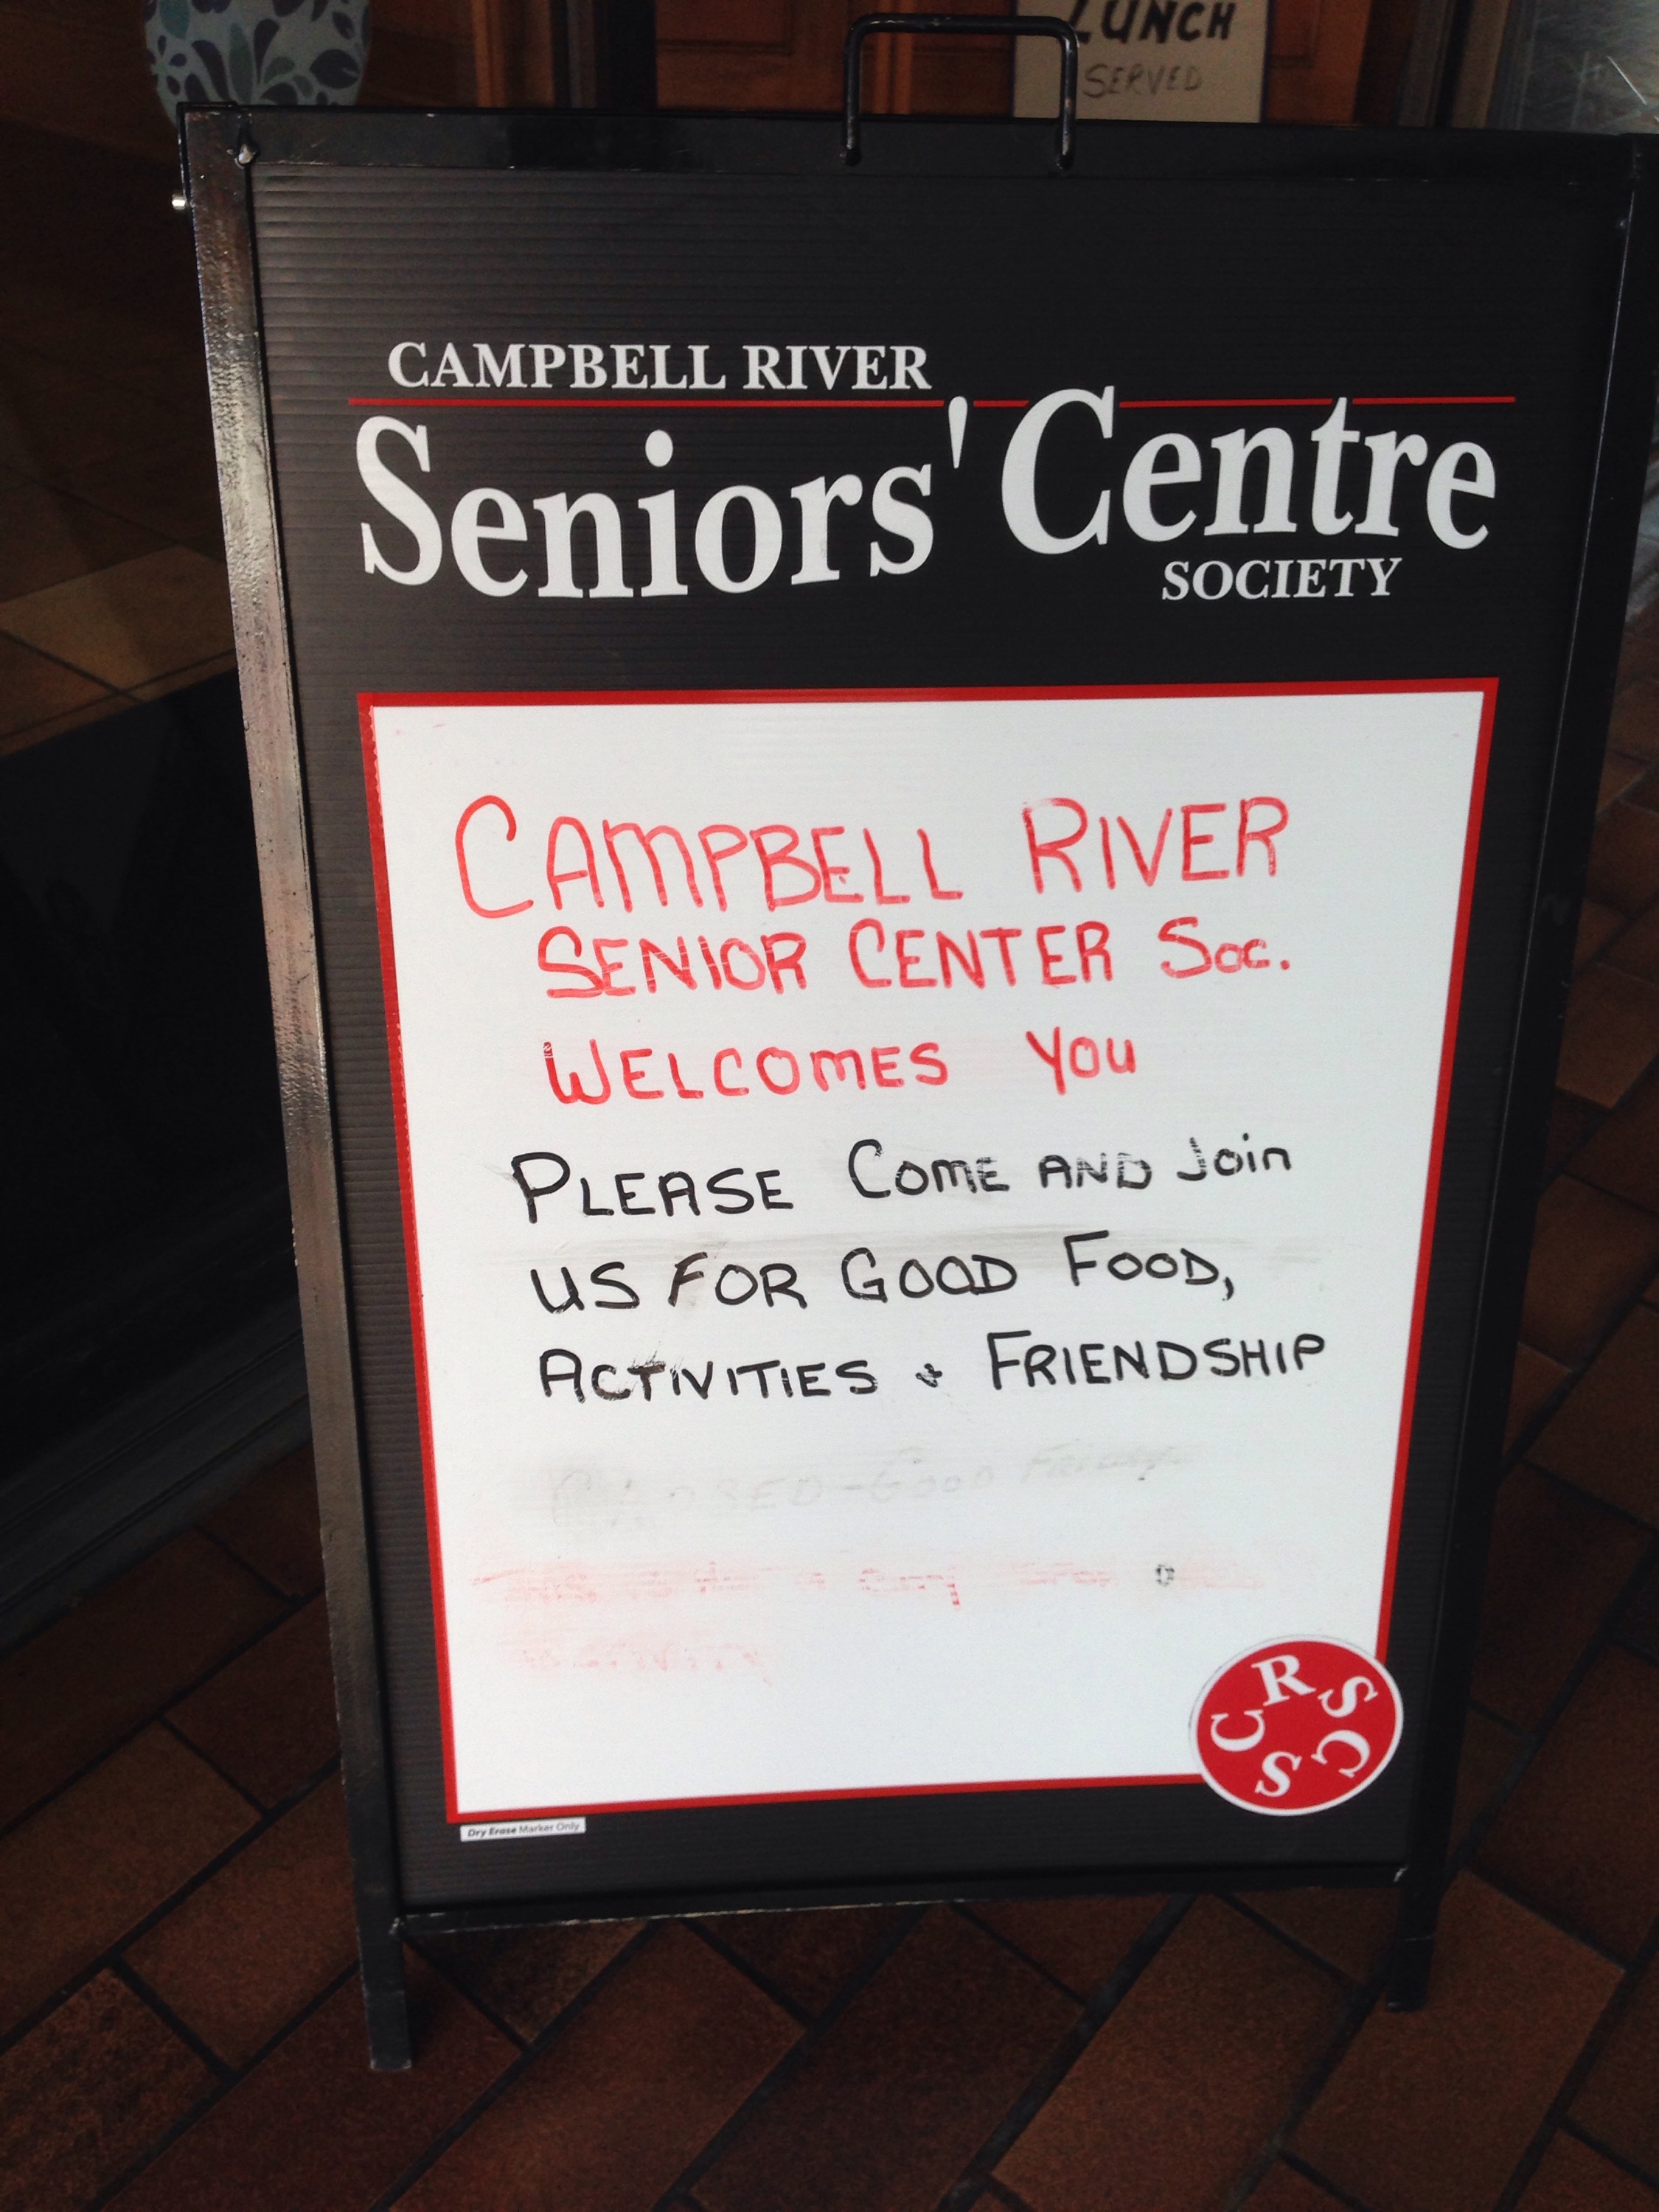 LUNCH
SERVED
CAMPBELL RIVER
Seniors' Centre
SOCIETY
CAMPBELL RIVER
SENIOR CENTER Soc.
WELCOMES YOU
PLEASE COME AND Join
US FOR GOOD FOOD,
ACTIVITIES & FRIENDSHIP
CLOSED - GOOD FRIDAY
CRSCS
Dry Erase Marker Only